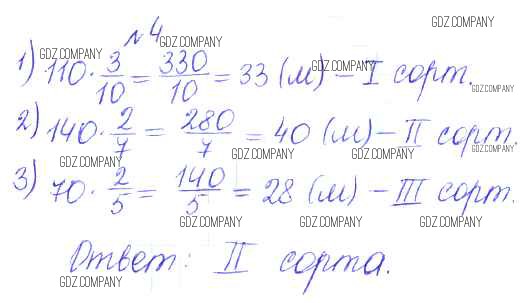 №4
GDZ.COMPANY
GDZ.COMPANY
GDZ.COMPANY GDZ.COMPANY
1) 110 · 3/10 = 330/10 = 33 (м) – I сорт.
GDZ.COMPANY GDZ.COMPANY
2) 140 · 2/7 = 280/7 = 40 (м) – II сорт.
GDZ.COMPANY GDZ.COMPANY GDZ.COMPANY GDZ.COMPANY
3) 70 · 2/5 = 140/5 = 28 (м) – III сорт.
GDZ.COMPANY GDZ.COMPANY GDZ.COMPANY
Ответ: II сорта.
GDZ.COMPANY